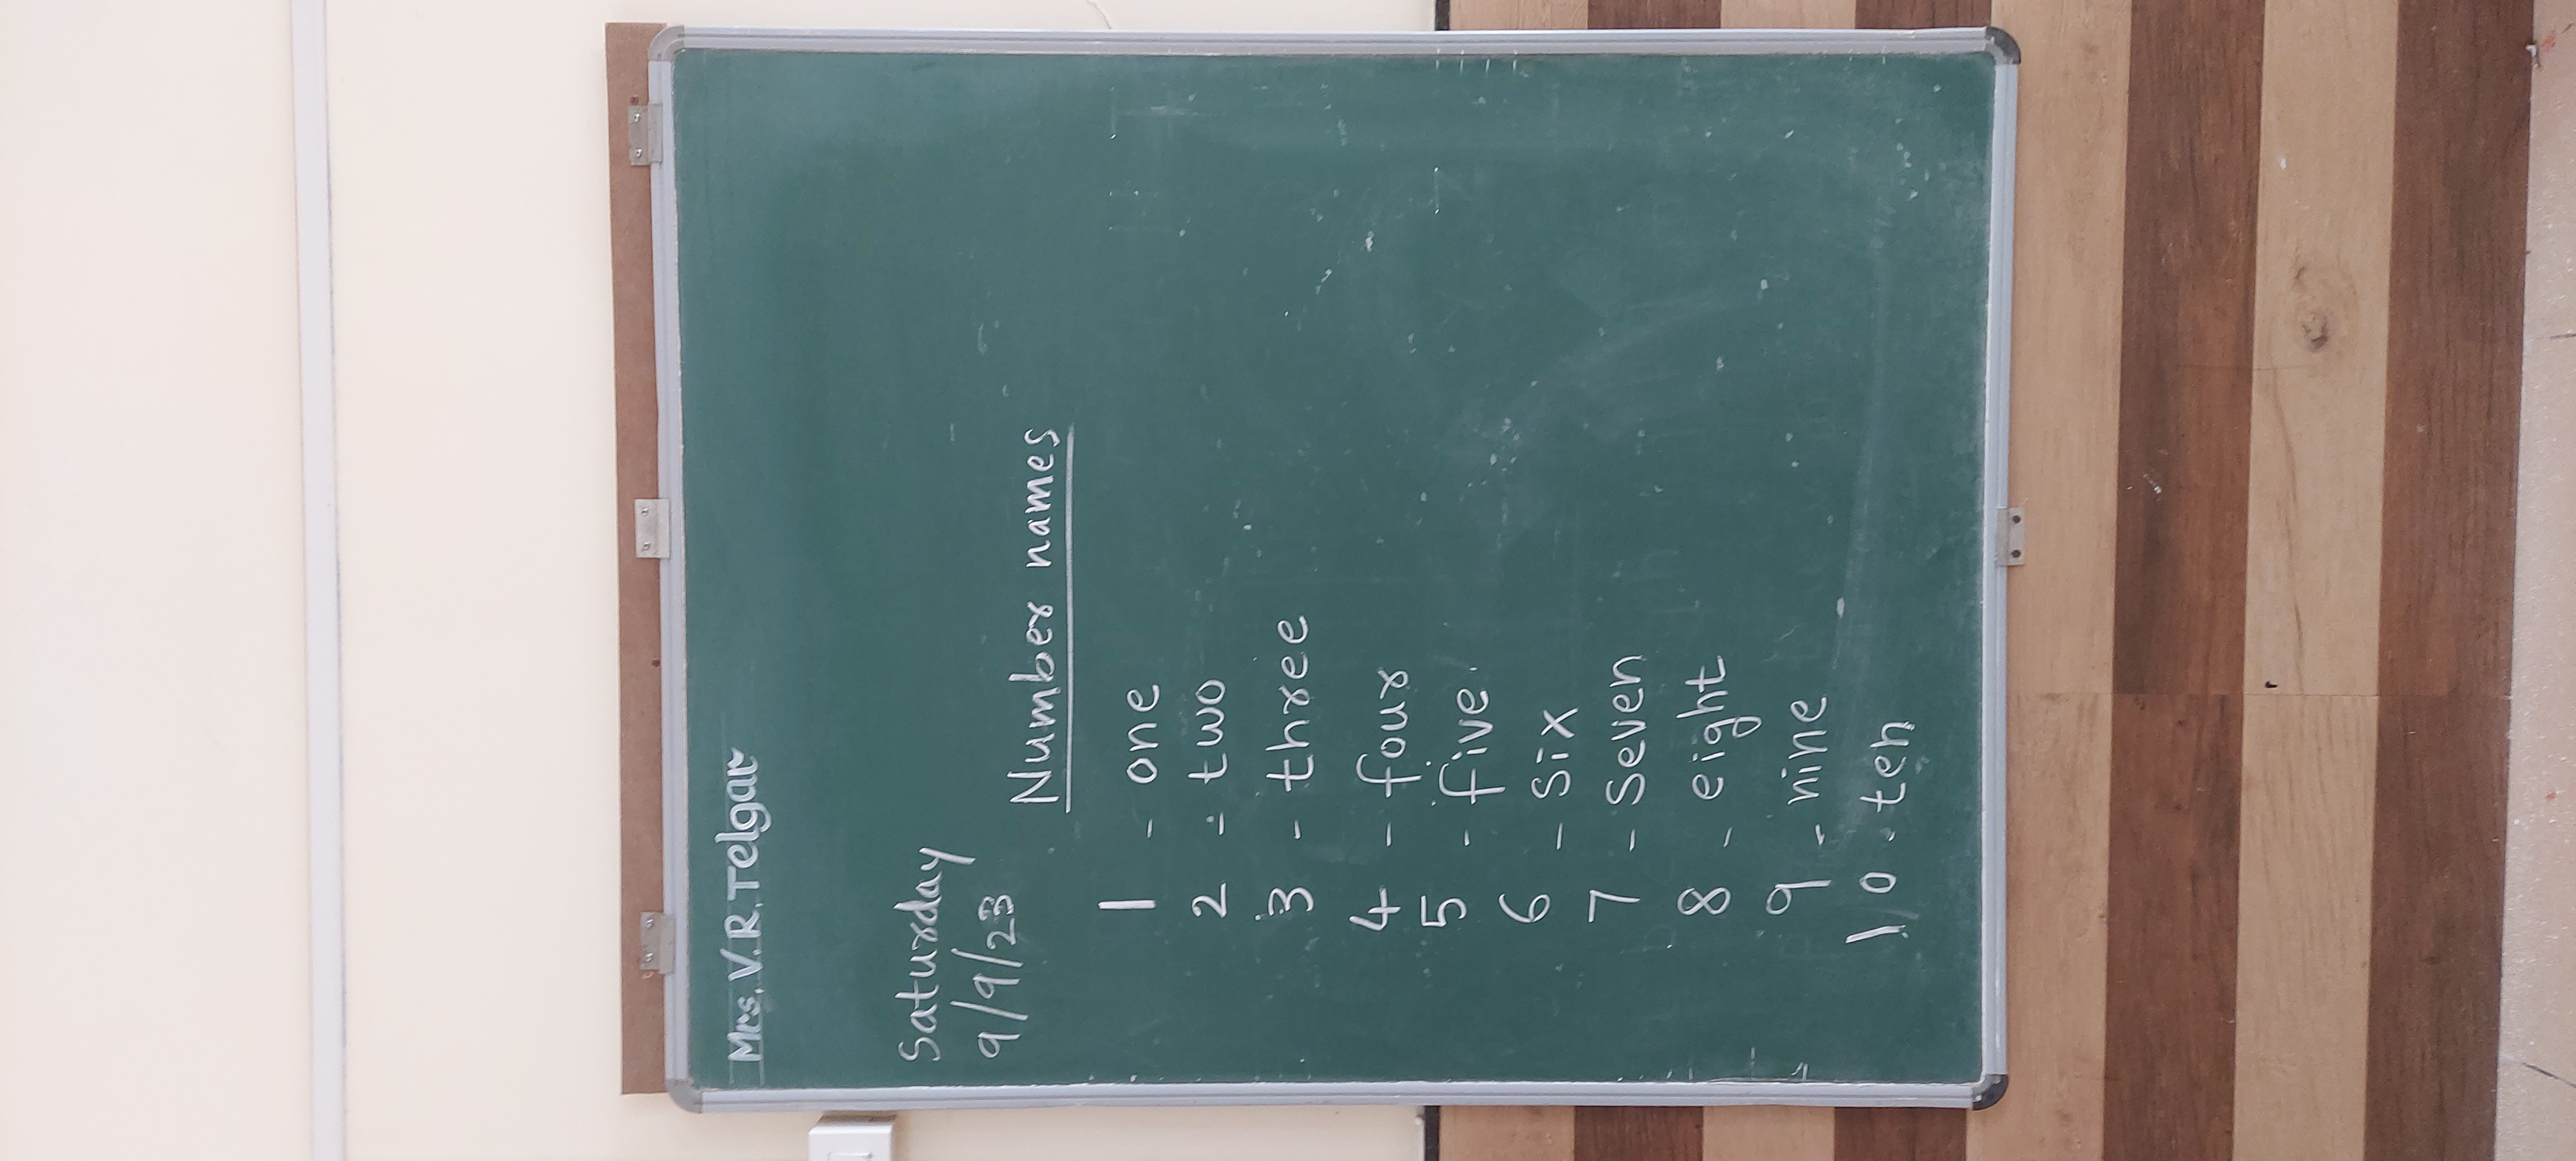 Mrs. V.R. Telgar
Saturday
9/9/23
Number names
1 - one
2 - two
3 - three
4 - four
5 - five
6 - Six
7 - Seven
8 - eight
9 - nine
10 - ten